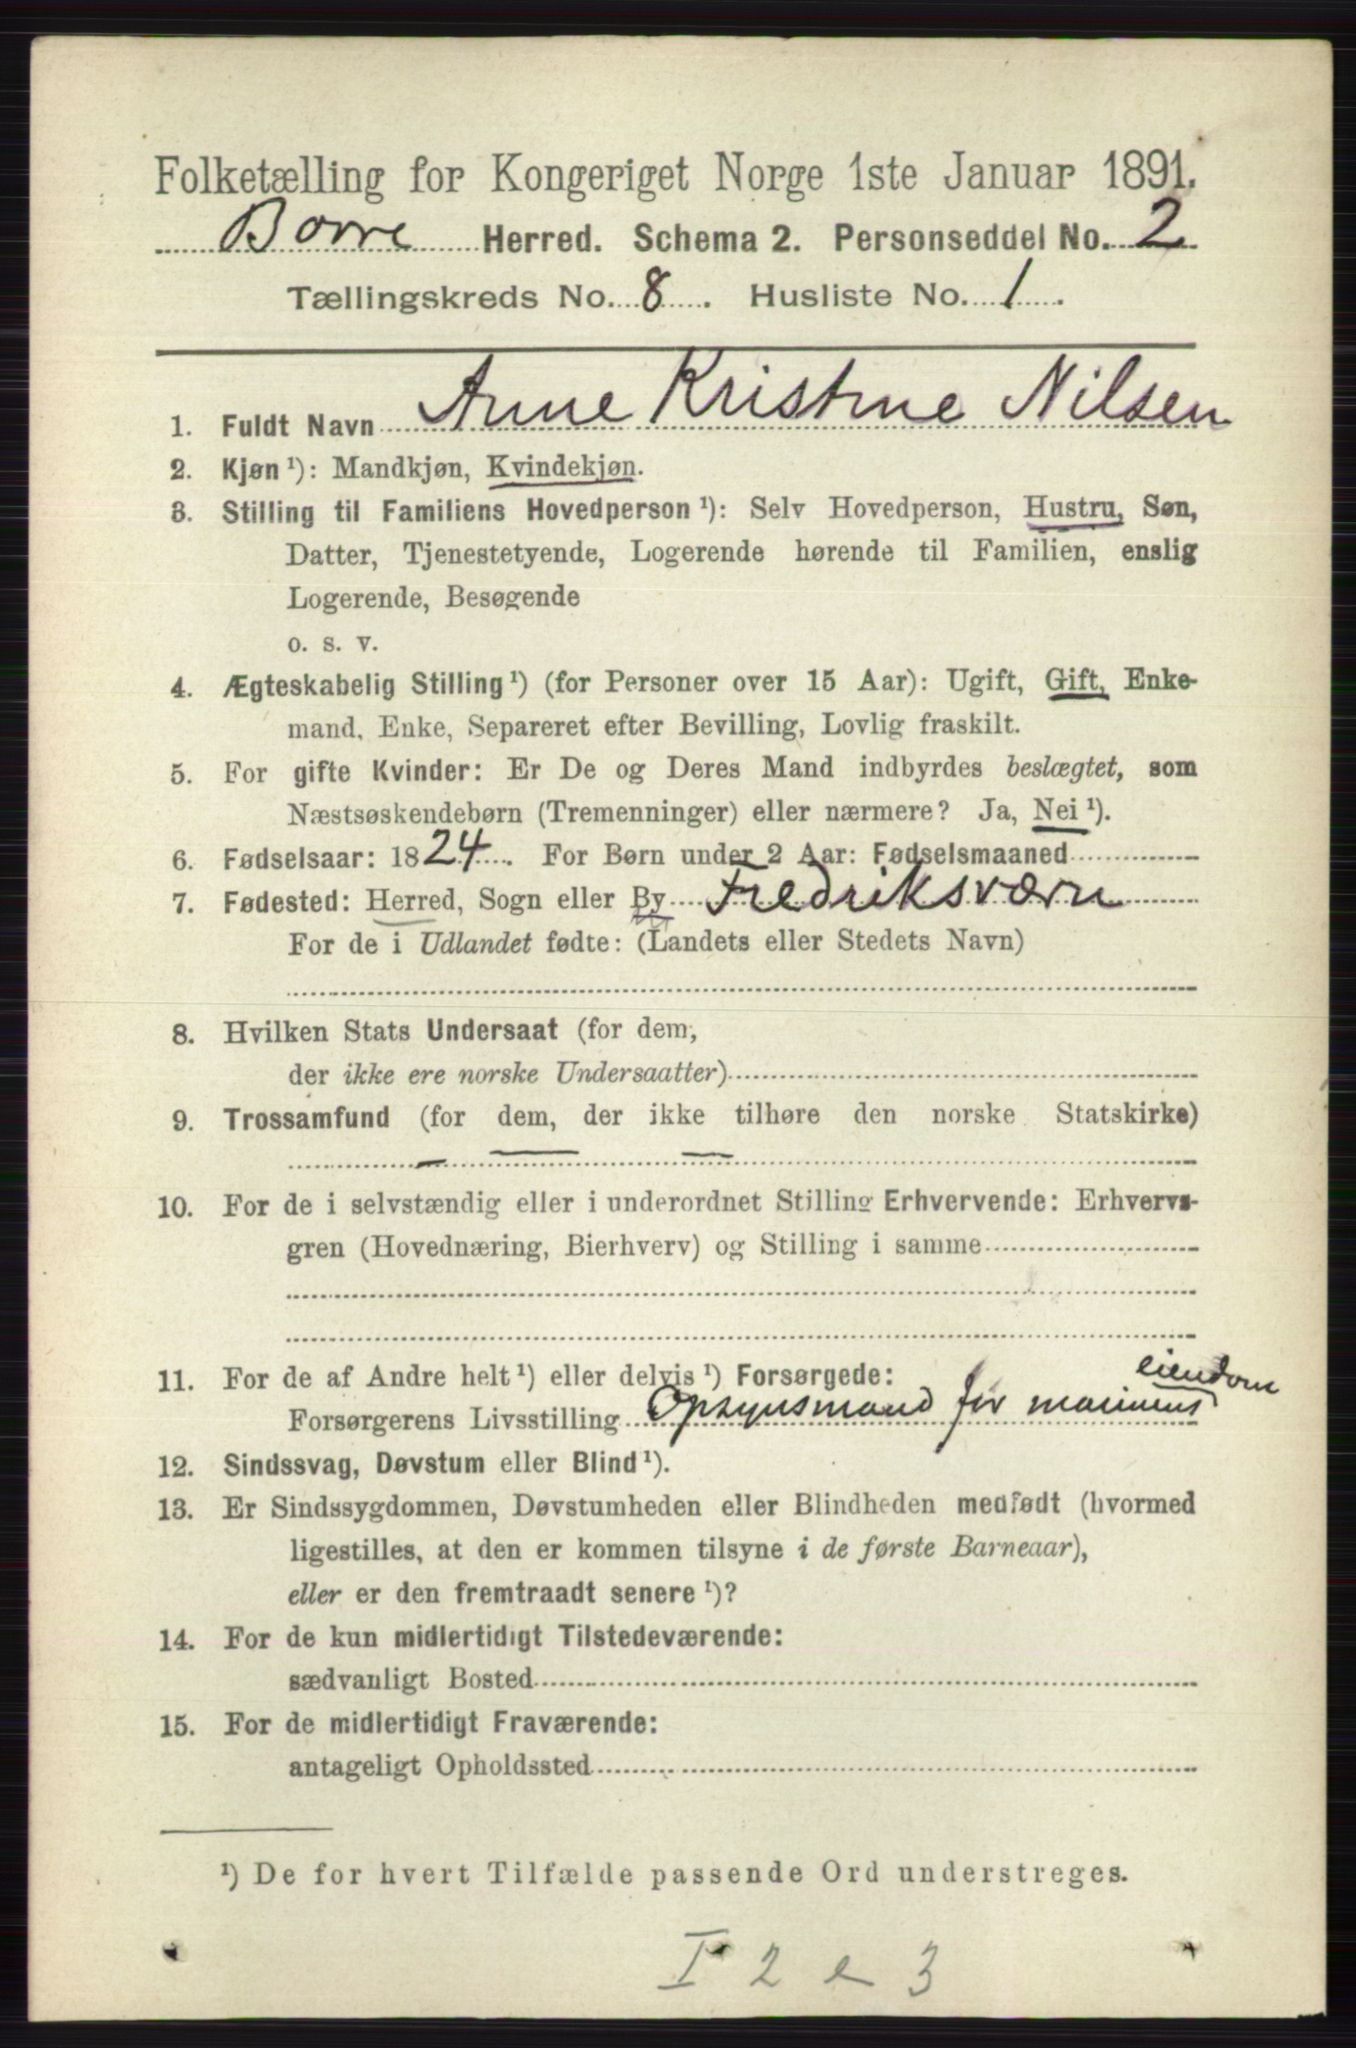 Folketælling for Kongeriget Norge 1ste Januar 1891.
Borre Herred. Schema 2. Personseddel No. 2
Tællingskreds No. 8. Husliste No. 1.
1. Fuldt Navn Anne Kristine Nilsen
2. Kjøn ¹): Mandkjøn, Kvindekjøn.
3. Stilling til Familiens Hovedperson ¹): Selv Hovedperson, Hustru, Søn,
Datter, Tjenestetyende, Logerende hørende til Familien, enslig
Logerende, Besøgende
o. s. v.
4. Ægteskabelig Stilling ¹) (for Personer over 15 Aar): Ugift, Gift, Enke-
mand, Enke, Separeret efter Bevilling, Lovlig fraskilt.
5. For gifte Kvinder: Er De og Deres Mand indbyrdes beslægtet, som
Næstsøskendebørn (Tremenninger) eller nærmere? Ja, Nei ¹).
6. Fødselsaar: 1824. For Børn under 2 Aar: Fødselsmaaned
7. Fødested: Herred, Sogn eller By Fredriksværn
For de i Udlandet fødte: (Landets eller Stedets Navn)
8. Hvilken Stats Undersaat (for dem,
der ikke ere norske Undersaatter)
9. Trossamfund (for dem, der ikke tilhøre den norske Statskirke)
10. For de i selvstændig eller i underordnet Stilling Erhvervende: Erhvervs-
gren (Hovednæring, Bierhverv) og Stilling i samme
11. For de af Andre helt ¹) eller delvis ¹) Forsørgede:
eiendom
Forsørgerens Livsstilling Opsynsmand for marinens
12. Sindssvag, Døvstum eller Blind ¹).
13. Er Sindssygdommen, Døvstumheden eller Blindheden medfødt (hvormed
ligestilles, at den er kommen tilsyne i de første Barneaar),
eller er den fremtraadt senere ¹)?
14. For de kun midlertidigt Tilstedeværende:
sædvanligt Bosted
15. For de midlertidigt Fraværende:
antageligt Opholdssted
¹) De for hvert Tilfælde passende Ord understreges.
I 2 e 3